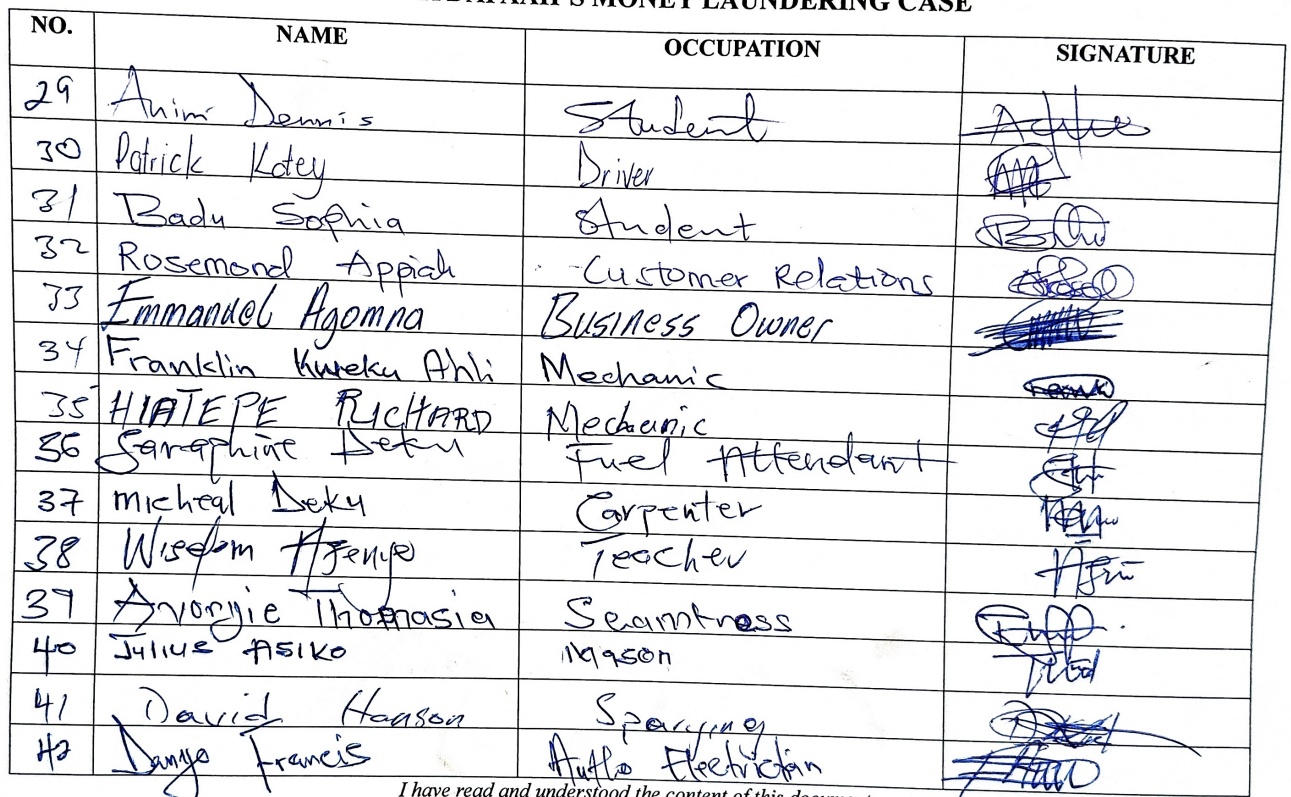 MONEY LAUNDERING CASE
NO. NAME OCCUPATION SIGNATURE
29 Animi Dennis Student
30 Patrick Kotey Driver
31 Badu Sophia Student
32 Rosemond Appiah Customer Relations
33 Emmanuel Agomna Business Owner
34 Franklin Kweku Ahli Mechanic
35 HIATEPE RICHARD Mechanic
36 Seraphine Deku Fuel Attendant
37 Micheal Deku Carpenter
38 Wisdom Teacher
39 Avoryie Thomasia Seamtress
40 Julius ASIKO Mason
41 David Hanson
42 Danyo Francis Electrician
I have read and understood the content of this